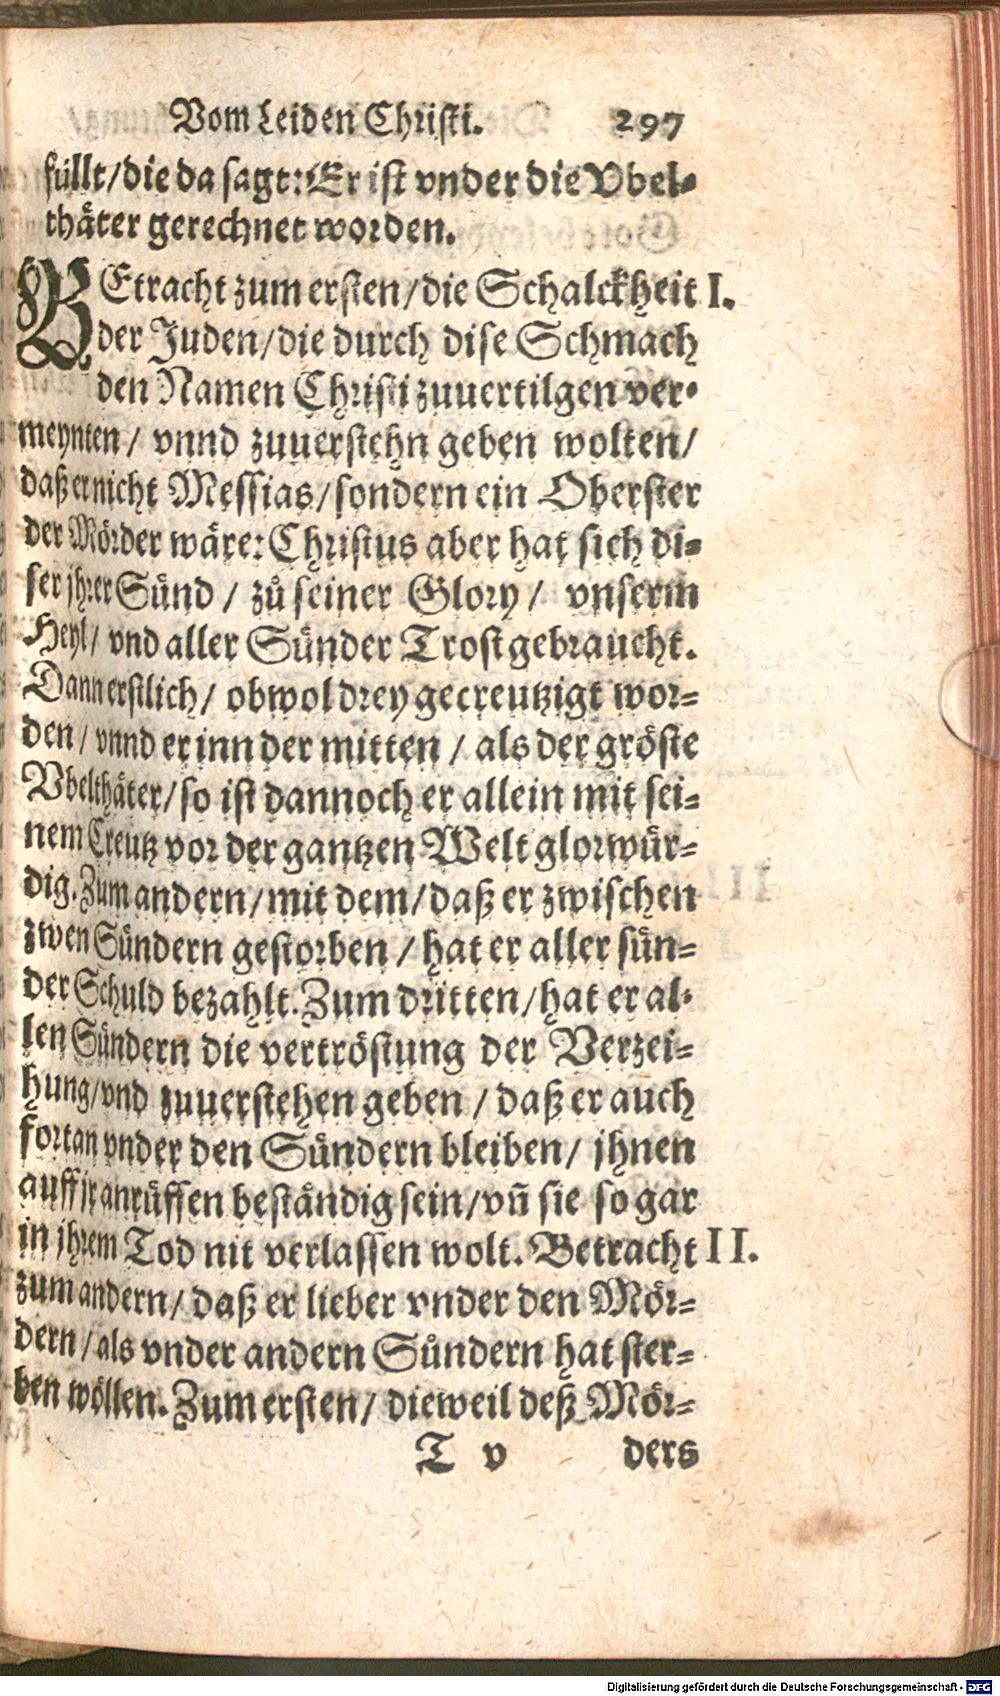 Vom Leiden Christi. 297
füllt/die da sagt: Er ist vnder die Vbel-
thäter gerechnet worden.
BEtracht zum ersten/die Schalckheit I.
der Juden/die durch dise Schmach
den Namen Christi zuuertilgen ver-
meynten/ vnnd zuuerstehn geben wolten/
daß er nicht Messias/sondern ein Oberster
der Mörder wäre: Christus aber hat sich di-
ser jhrer Sünd / zů seiner Glory / vnserm
Heyl/ vnd aller Sünder Trost gebraucht.
Dann erstlich/ obwol drey gecreutzigt wor-
den / vnnd er inn der mitten / als der gröste
Vbelthäter/so ist dannoch er allein mit sei-
nem Creutz vor der gantzen Welt glorwür-
dig. Zum andern/mit dem/daß er zwischen
zwen Sündern gestorben / hat er aller sün-
der Schuld bezahlt. Zum dritten/hat er al-
len Sündern die vertröstung der Verzei-
hung/vnd zuuerstehen geben / daß er auch
fortan vnder den Sündern bleiben/ jhnen
auff jr anrüffen beständig sein/vñ sie so gar
in jhrem Tod nit verlassen wolt. Betracht II.
zum andern/ daß er lieber vnder den Mör-
dern / als vnder andern Sündern hat ster-
ben wöllen. Zum ersten/ dieweil deß Mör-
T v ders
Digitalisierung gefördert durch die Deutsche Forschungsgemeinschaft - DFG